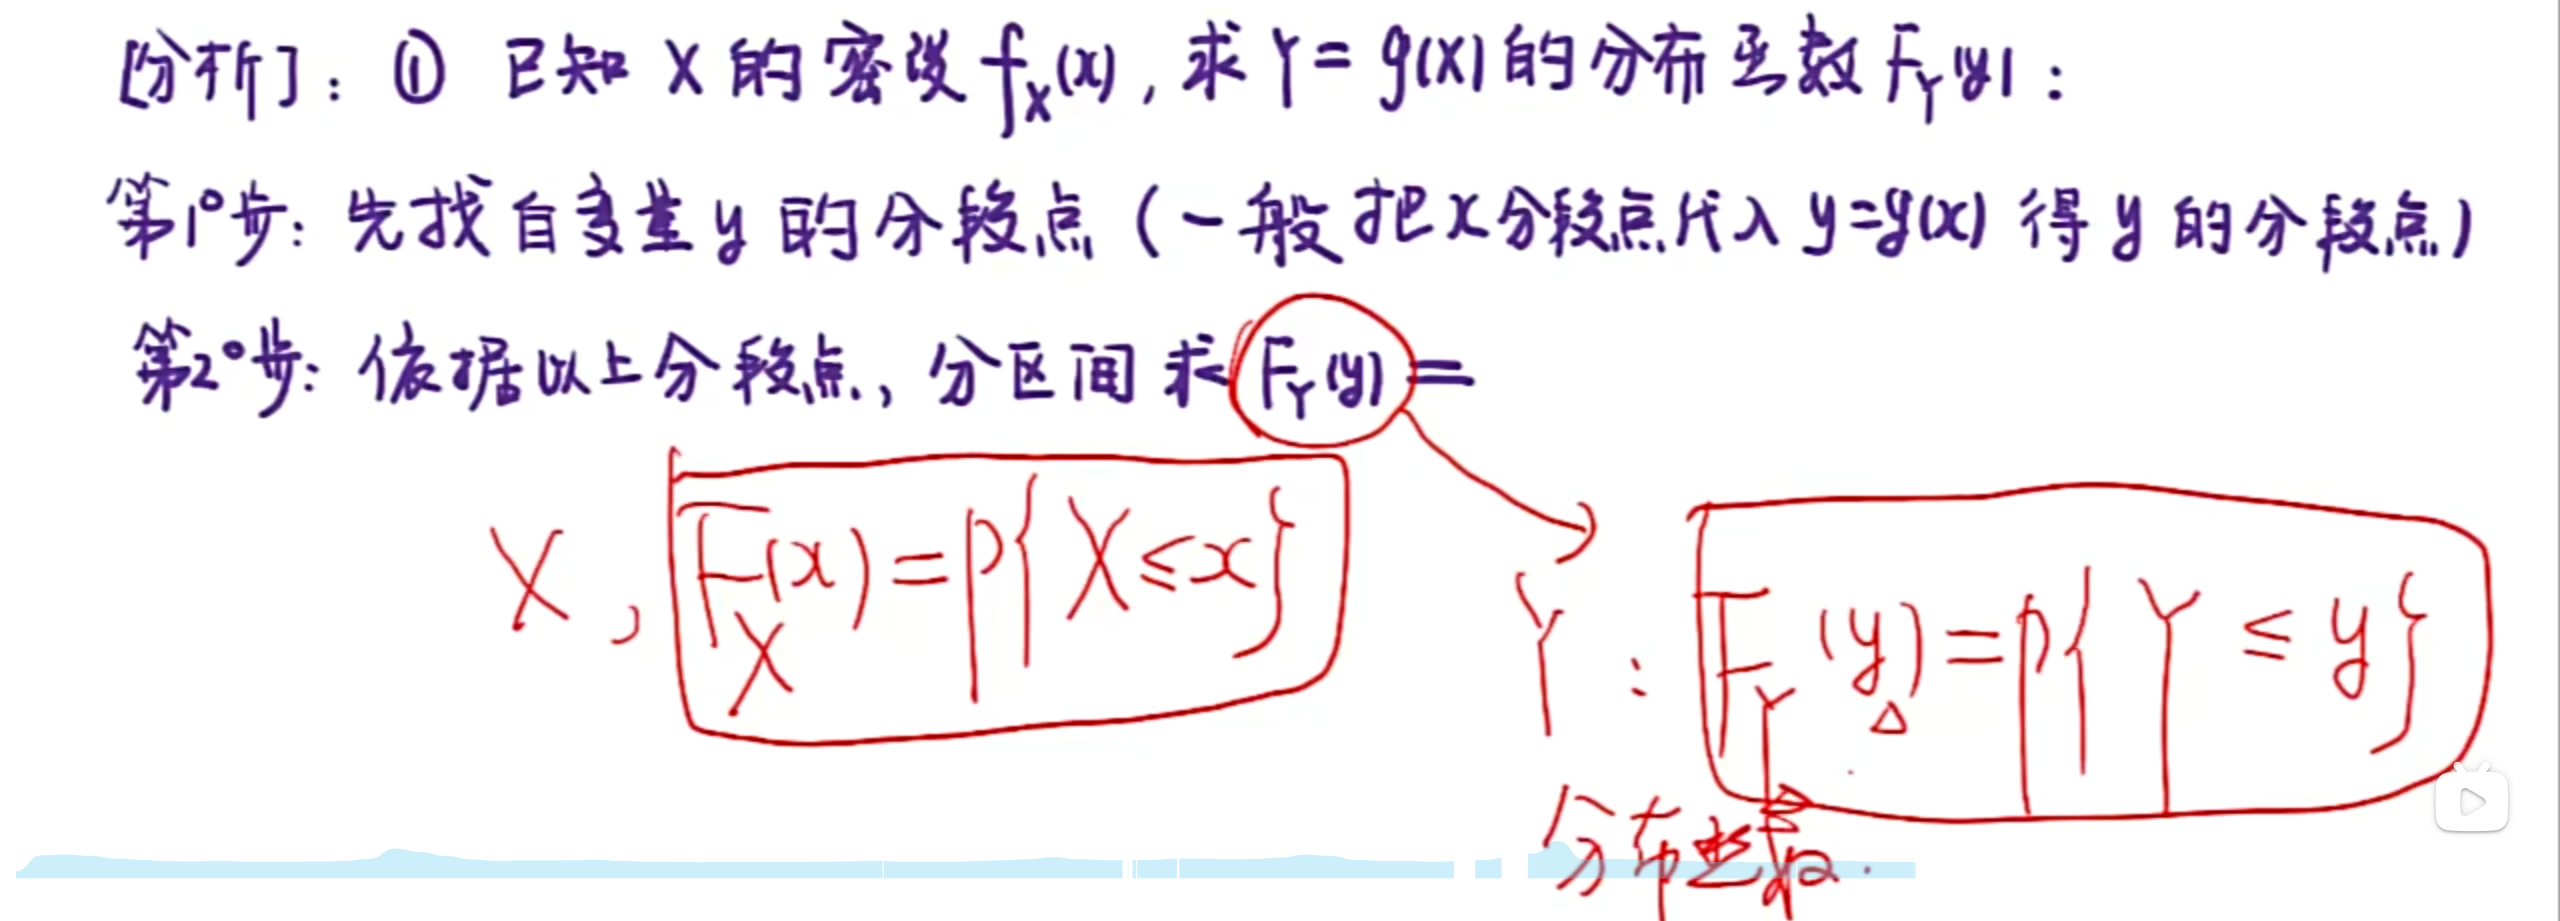 [分析]: ① 已知 X 的密度 f_X(x), 求 Y = g(X) 的分布函数 F_Y(y):
第1°步: 先找自变量 y 的分段点 (一般把 x 分段点代入 y=g(x) 得 y 的分段点)
第2°步: 依据以上分段点, 分区间求 F_Y(y) =
X, F_X(x) = P{X ≤ x}
Y: F_Y(y) = P{Y ≤ y}
分布函数.